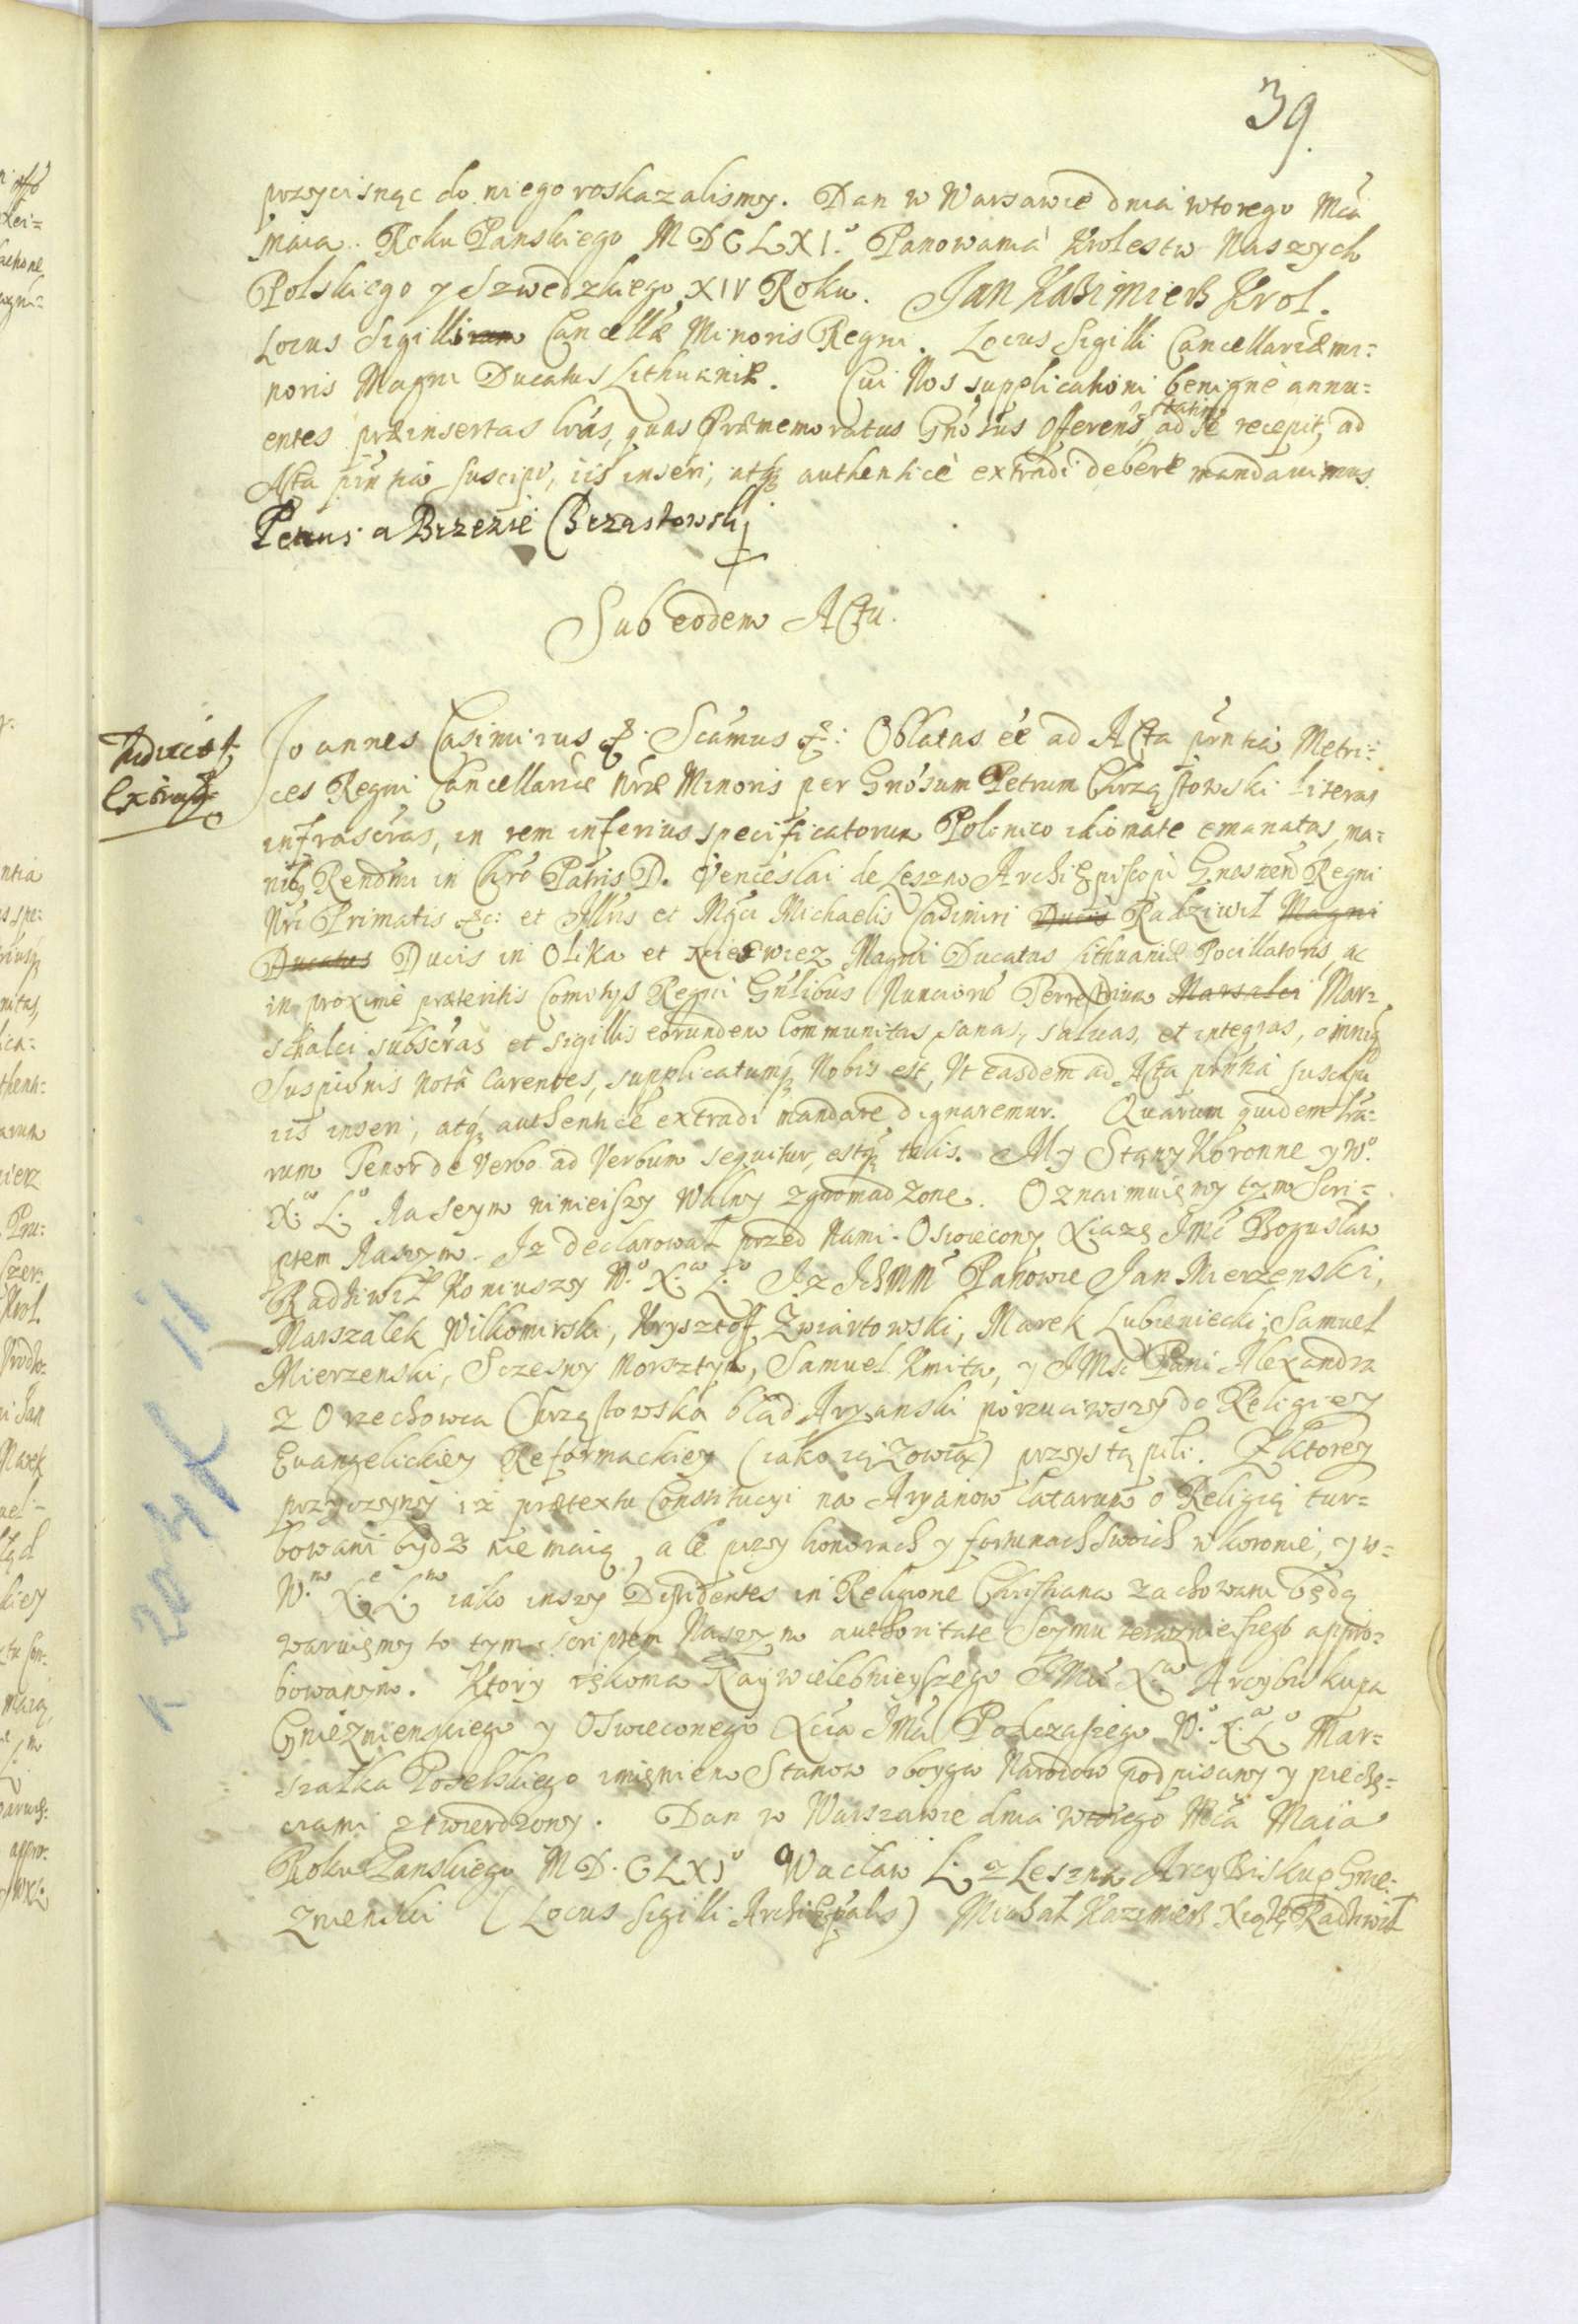 39.
przycisnąc do niego roskazalismy. Dan w Warszawie dnia wtorego Mca
Maia. Roku Panskiego MDCLXI.o Panowania Krolestw Naszych
Polskiego y Szwedzkiego XIV Roku. Jan Kazimierz Krol.
Locus Sigilli Cancellæ Minoris Regni. Locus Sigilli Cancellariæ mi=
noris Magni Ducatus Lithuaniæ. Cui Nos supplicationi benignè annu=
entes præinsertas lrās, quas Præmemoratus Gnōsus Offerens, statim ad se recepit, ad
Acta prntia suscipi, iis inseri, atq authenticè extradi debere mandavimus.
Petrus a Brzezie Chrzastowskj
Sub eodem Actu.
Joannes Casimirus &. Scamus &: Oblatas ēē ad Acta prntia Metri=
ces Regni Cancellariæ Nræ Minoris per Gnōsum Petrum Chrząstowski literas
infrascras, in rem inferius specificatorum Polonico idiomate emanatas, ma=
nibq Rendmi in Chro Patris D. Venceslai de Leszno Archi Episcopi Gnesnen Regni
Nri Primatis &c: et Illris et Mgci Michaelis Casimiri Ducis Radziwił Magni
Ducatus Ducis in Olika et Nieswiez Magni Ducatus Lithuaniæ Pocillatoris, ac
in proximè præteritis Comitys Regni Gnlibus Nunciorū Terrestrium Marsalci Mar=
schalci subscras et sigillis eorundem Communitas, sanas, saluas, et integras, omniq
Suspicionis notâ Carentes, supplicatumq Nobis est, Vt easdem ad Acta prntia suscipi
iis inseri, atq authenticè extradi mandare dignaremur. Quarum quidem lra=
rum Tenor de Verbo ad Verbum sequitur, estq talis. My Stany Koronne y W.o
X.a L.o Na Seym ninieiszy Walny zgromadzone. Oznaimuięmy tym Scri=
ptem Naszym. Iz declarował przed Nami Oswiecony Xiązę Jmć Bogusław
Radziwił Koniuszy W.o X.a L.o Iz Ichmm Panowie Jan Mierzenski,
Marszałek Wilkomirski, Krysztoff Zwiartowski, Marek Lubieniecki, Samuel
Mierzenski, Sczesny Morsztyn, Samuel Kmita, y JMsc Pani Alexandra
z Orzechowca Chrząstowska bląd Aryanski porzuciwszy do Religiey
Euangelickiey Reformackiey (iako ią zowią) przystąpili. Z ktorey
przyczyny iz prætextu Constitucyi na Aryanow latarum o Religią tur=
bowani bydz nie maią, ale przy honorach y fortunach swoich w koronie, y w=
W.m X.e L.m iako inszy Dissidentes in Religione Christiana zachowani będą
waruięmy to tym scriptem Naszym authoritate Seymu teraznieiszego appro=
bowanym. Ktory rękoma Naywielebnieyszego JMci X.a Arcybiskupa
Gnieznienskiego y Oswieconego Xcia JMci Podczaszego W.o X.a L.o Mar=
szałka Poselskiego imięniem Stanow oboyga Narodow podpisany y piechę=
ciami ztwierdzony. Dan w Warszawie dnia wtorego Mca Maia
Roku Panskiego MD.CLXI.o Wacław L. z Leszna Arcy Biskup Gnie=
znienski (Locus Sigilli Archi Eppalis) Michał Kazimierz Xiążę Radziwił